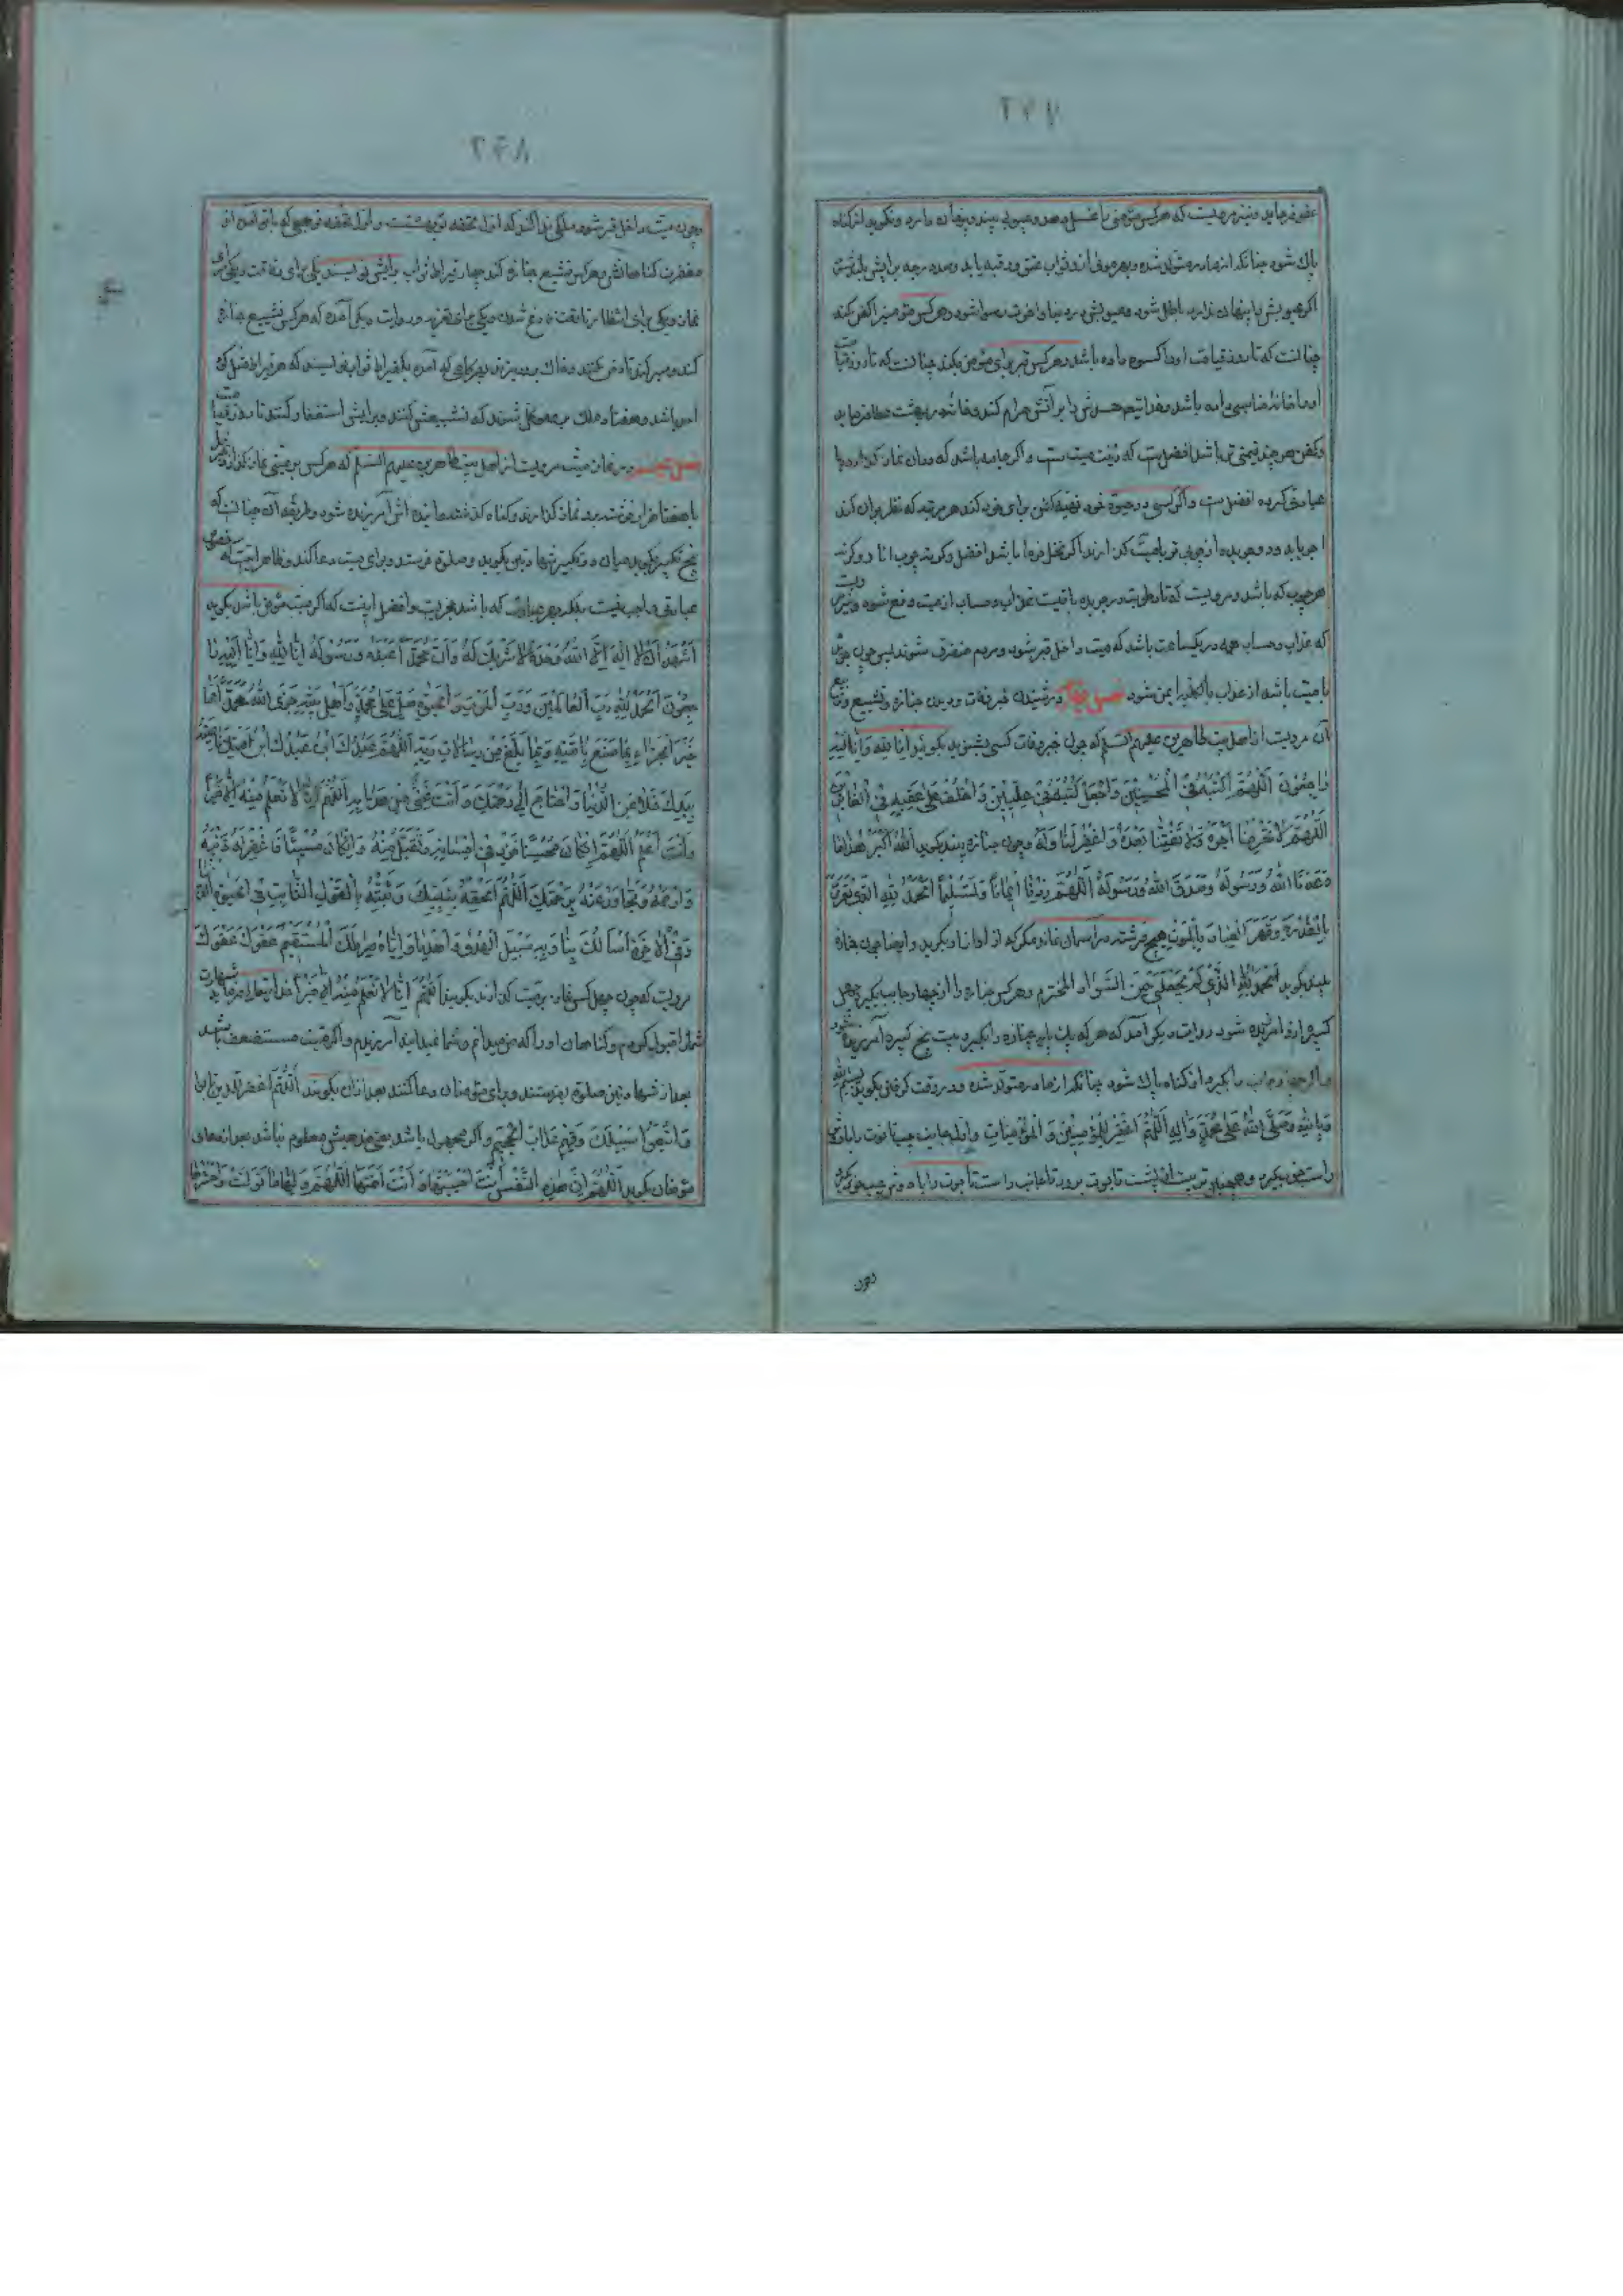 عفو فرماید و نیز مرویست که هر کس مؤمنی را غسل دهد و عیوبی بیند و پنهان دارد و نگوید از گناه
پاک شود چنانکه از مادر متولد شده و بهر موئی از او ثواب عتق رقبه یابد و صد درجه برایش بلند شود
اگر عیوبش را پنهان ندارد باطل شود و عیوبش در دنیا و آخرت رسوا شود و هر کس مؤمنی را کفن کند
چنانست که تا روز قیامت او را کسوه داده باشد و هر کس قبر برای مؤمن بکند چنانست که تا روز قیامت
او را خانه مناسبی داده باشد و خدایتعالی جسدش را بر آتش حرام کند و خانه در بهشت عطا فرماید
و کفن هر چند قیمتی تر باشد افضلست که زینت میت است و اگر جامه باشد که در آن نماز گذارده یا
عبادتی کرده افضلست و اگر کسی در حیوة خود تهیه کفن برای خود کند هر مرتبه که نظر بر آن کند
اجر یابد و دو جریده از چوبی تر با میت گذارند اگر نخل خرما باشد افضل و گر نه چوب انار و گر نه
هر چوب که باشد و مرویست که تا رطوبت در جریده باقیست عذاب و حساب از میت دفع شود و نیز مرویست
که عذاب و حساب همه در یکساعت باشد که میت داخل قبر شود و مردم متفرق شوند پس چون چوب تر
با میت باشد از عذاب بالکلیه ایمن شود فصل چهارم در شنیدن خبر وفات و دیدن جنازه و تشییع و تربیع
آن مرویست از اهل بیت طاهرین علیهم السلم که چون خبر وفات کسی بشنوید بگوئید انا لله و انا الیه
راجعون اللهم اکتبه فی المحسنین و اجعل کتبه فی علیین و اخلف علی عقبه فی الغابرین
اللهم لا تحرمنا اجره و لا تفتنا بعده و اغفر لنا و له و چون جنازه بیند بگوید الله اکبر هذا ما
وعدنا الله و رسوله و صدق الله و رسوله اللهم زدنا ایمانا و تسلیما الحمد لله الذی تعزز
بالقدرة و قهر العباد بالموت هیچ فرشته در آسمان نماند مگر که از آواز او بگرید و ایضا چون جنازه
بیند بگوید الحمد لله الذی لم یجعلنی من السواد المخترم و هر کس جنازه را از چهار جانب بگیرد چهل
کبیره از او آمرزیده شود و روایت دیگر آمد که هر که یک پایه جنازه را بگیرد بیست پنج کبیره آمرزیده شود
و اگر چهار جانب را بگیرد از گناه پاک شود چنانکه از مادر متولد شده و در وقت گرفتن بگوید بسم الله
و بالله و صلی الله علی محمد و آله اللهم اغفر للمؤمنین و المؤمنات و اول جانب چپ تابوت را با دوش
راست خود بگیرد و همچنان ترتیب از پشت تابوت برود تا جانب راست تابوت را با دوش چپ خود بگیرد
و چون
و چون میت داخل قبر شود ملکی ندا کند که اول تحفه تو بهشتست و اول تحفه هر کس که با تو آمد آن
مغفرت گناهانش و هر کس تشییع جنازه کند چهار قیراط ثواب برایش نویسند یکی برای رفاقت و یکی برای
نماز و یکی برای انتظار تا وقت فارغ شدن و یکی برای تعزیه و روایت دیگر آمده که هر کس تشییع جنازه
کند و صبر کند تا دفن کنند و خاک برو بریزند بهر گامی که آمده یکقیراط ثواب نویسند که هر قیراط مثل کوه
احد باشد و هفتاد ملک برو موکل شوند که تشییعش کنند و برایش استغفار کنند تا روز قیامت
فصل پنجم در نماز میت مرویست از اهل بیت طاهرین علیهم السلم که هر کس بر میتی نماز گذارد جبرئیل
با هفتاد هزار فرشته برو نماز گذارند و گناه گذشته و آینده اش آمرزیده شود و طریقه آن چنانست که
پنج تکبیر بگوید میان دو تکبیر شهادتین بگوید و صلوة فرستد و برای میت دعا کند و ظاهر اینست که مخصوص
عبارتی واجب نیست بلکه بهر عبارت که باشد مجزیست و افضل اینست که اگر میت مؤمن باشد بگوید
اشهد ان لا اله الا الله وحده لا شریک له و ان محمدا عبده و رسوله انا لله و انا الیه
راجعون الحمد لله رب العالمین و رب الموت و الحیوة صل علی محمد و اهل بیته جزی الله محمدا عنا
خیر الجزاء بما صنع بامته و بما بلغ من رسالات ربه اللهم عبدک ابن عبدک ابن امتک ناصیته
بیدک خلا من الدنیا و احتاج الی رحمتک و انت غنی من عذابه اللهم انا لا نعلم منه الا خیرا
و انت اعلم اللهم ان کان محسنا فزد فی احسانه و تقبل منه و ان کان مسیئا فاغفر له ذنبه
و ارحمه و تجاوز عنه برحمتک اللهم الحقه بنبیک و ثبته بالقول الثابت فی الحیوة الدنیا
و فی الآخرة اسالک بنا و به سبیل الهدی و اهدنا و ایاه صراطک المستقیم عفوک عفوک
مرویست که چون چهل کس نماز بر میت گذارند بگویند اللهم انا لا نعلم منه الا خیرا خدایتعالی فرماید شهادت
شما را قبول کردم و گناهان او را که من میدانم و شما نمیدانید آمرزیدم و اگر میت مستضعف باشد
بعد از شهادتین صلوة بفرستند و برای مؤمنان دعا کنند بعد از آن بگویند اللهم اغفر للذین تابوا
و اتبعوا سبیلک و قهم عذاب الجحیم و اگر مجهول باشد یعنی مذهبش معلوم نباشد بعد از دعای
مؤمنان بگوید اللهم ان هذه النفس انت احییتها و انت امتها اللهم ولها ما تولت و احشرها